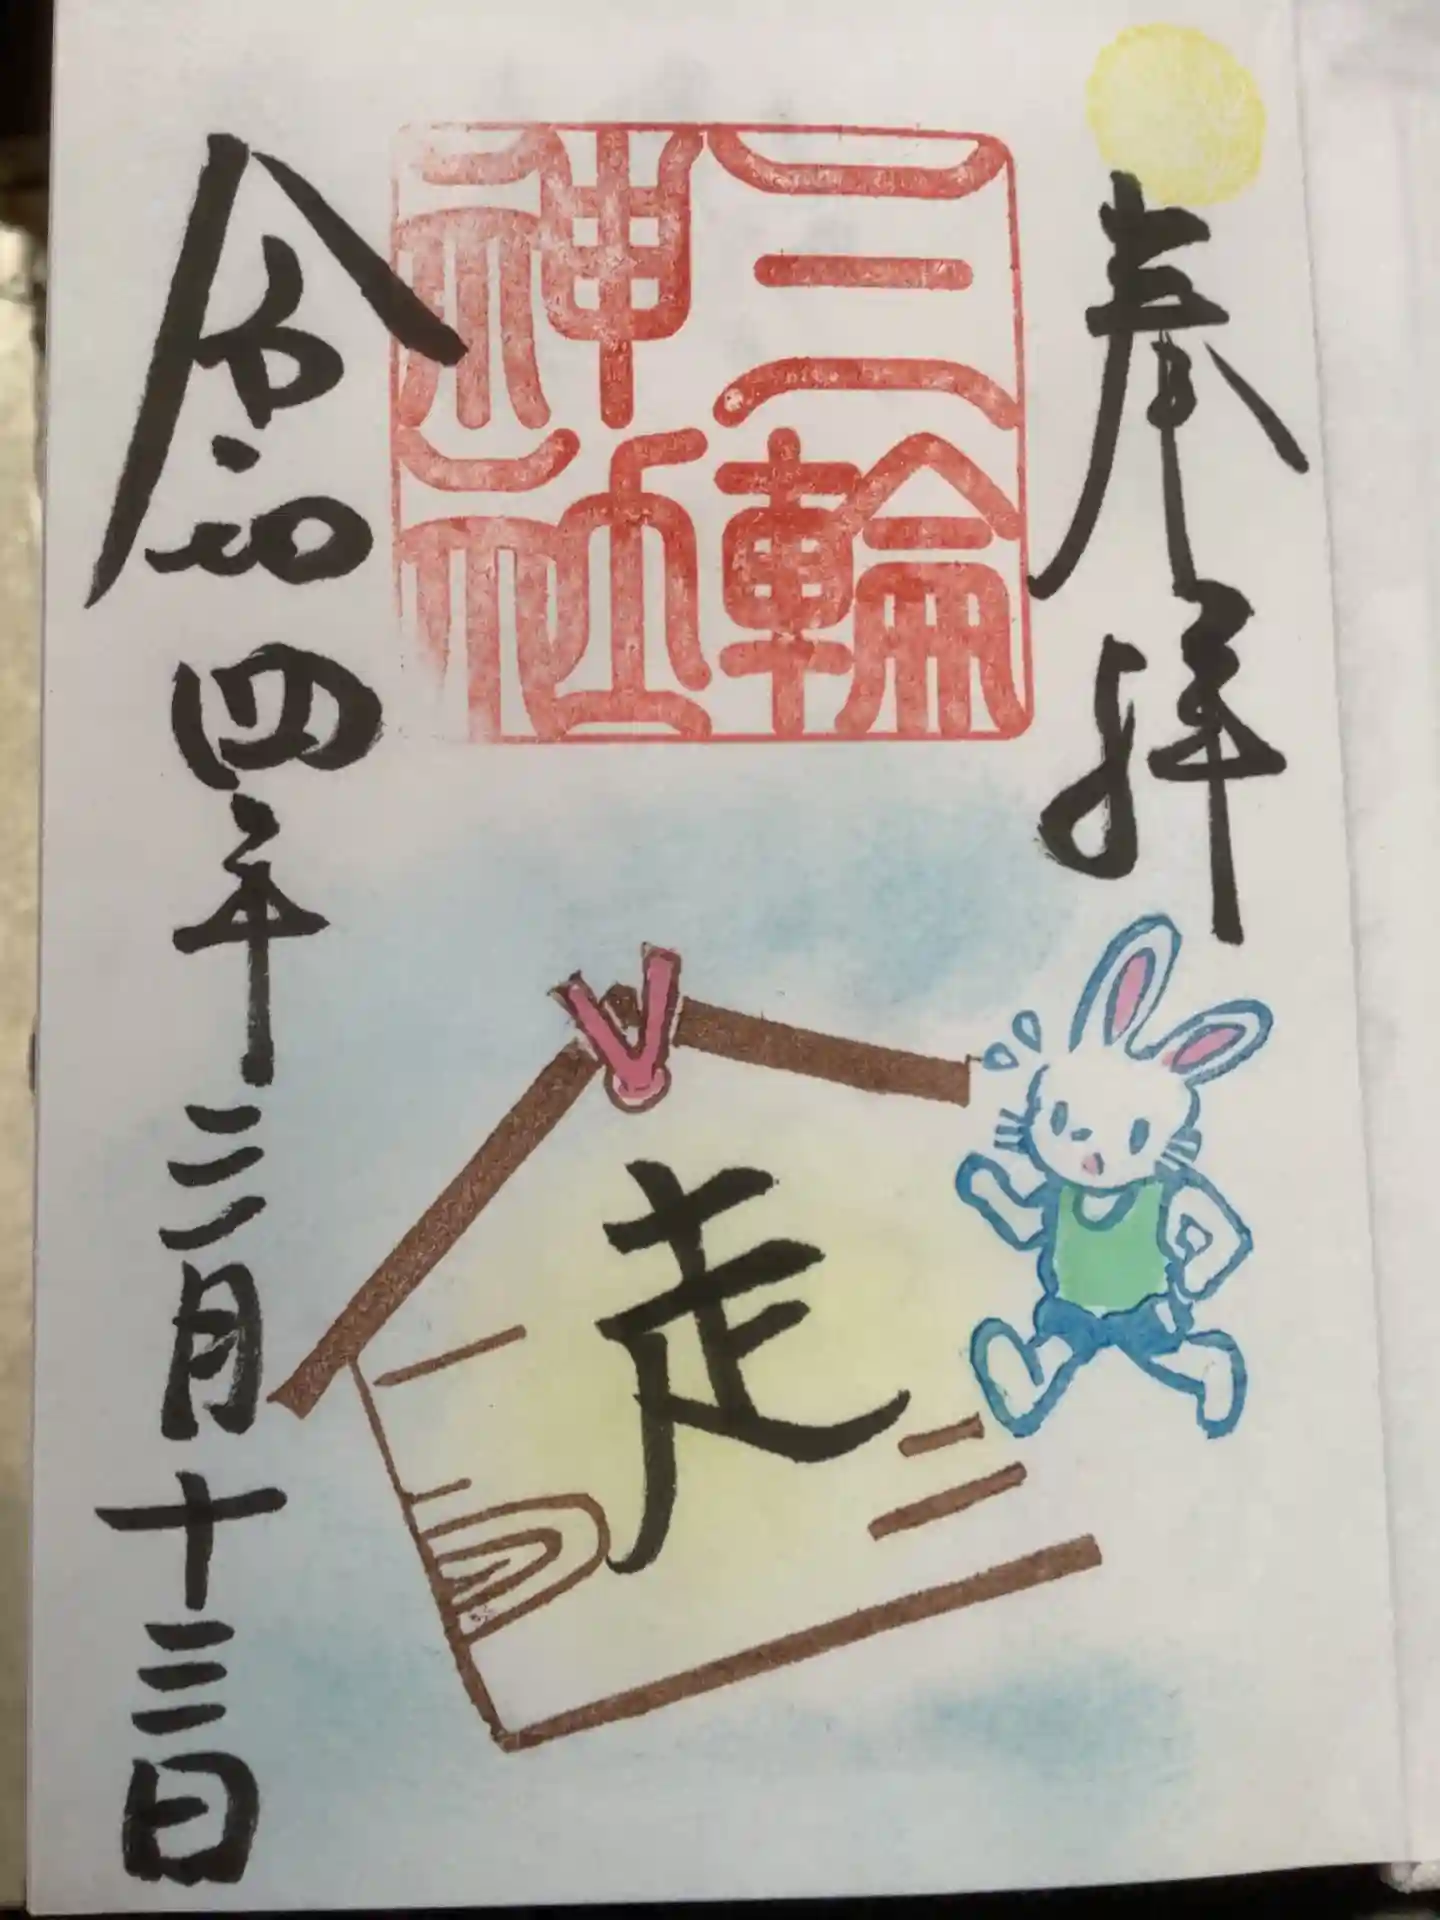 奉拝
三輪
神社
走
令和四年三月十三日